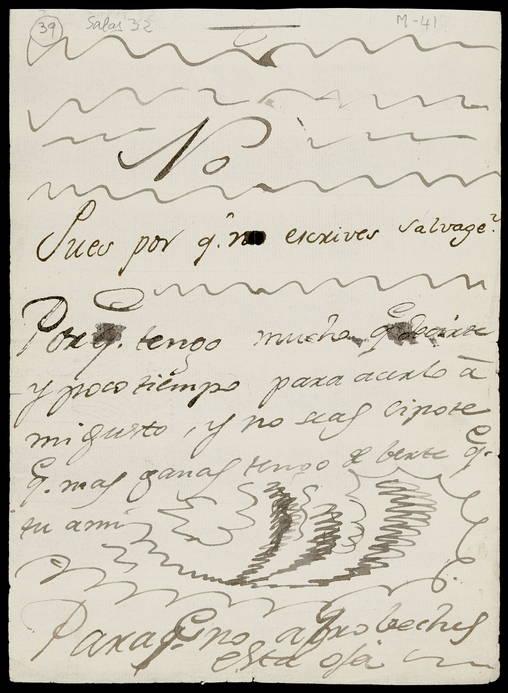 39
Salas 32
M-41
No
Pues por q.e no escrives salvage?
Porq.e tengo mucho q.e decirte
y poco tiempo para acerlo á
mi gusto, y no seas zipote
q.e mas ganas tengo de berte q.e
tu a mi
Para q.e no aprobeches
esta oja